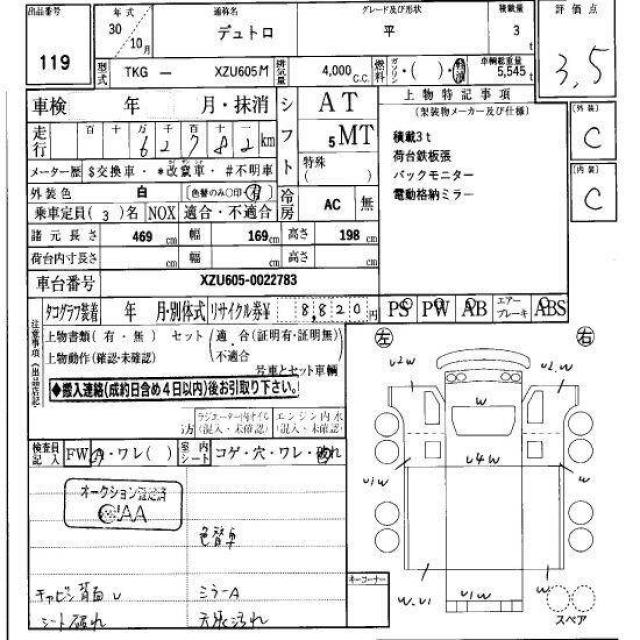 出品番号 119
年式 30 10月
通称名 デュトロ
グレード及び形状 平
積載量 3 t
評価点 3,5
型式 TKG － XZU605M
排気量 4,000 C.C.
燃料 ガソリン・( )・軽油
車輌総重量 5,545 t
車検 年 月・抹消
シフト AT 5 MT 特殊 ( )
上物特記事項
(架装物メーカー及び仕様)
走行 百 十 万 千 百 十 62782 km
積載3t
荷台鉄板張
バックモニター
電動格納ミラー
外装 C
内装 C
メーター歴 $交換車・*改竄車・#不明車
外装色 白 (色替のみ○印・有)
冷房 AC 無
乗車定員( 3 )名 NOX 適合・不適合
諸元長さ 469 cm 幅 169 cm 高さ 198 cm
荷台内寸長さ cm 幅 cm 高さ cm
車台番号 XZU605-0022783
タコグラフ装着 年 月・別体式 リサイクル券¥ 8,820円
PS PW AB エアーブレーキ ABS
注意事項(出品店記入)
上物書類(有・無) セット(適合(証明有・証明無)
上物動作(確認・未確認) 不適合
号車とセット車輌
◆搬入連絡(成約日含め4日以内)後お引取り下さい。
ラジエーター内オイル エンジン内水
(混入・未確認) (混入・未確認)
検査員記入 FW A・ワレ( ) 室内シート コゲ・穴・ワレ・破れ
オークション認定済
CIAA
色替車
キャビン背面 U ミラーA
シート破れ 天張汚れ
キーコーナー
左 右
U2W U2.W
W
U4W
U1W W
W.U1 U1W W
スペア